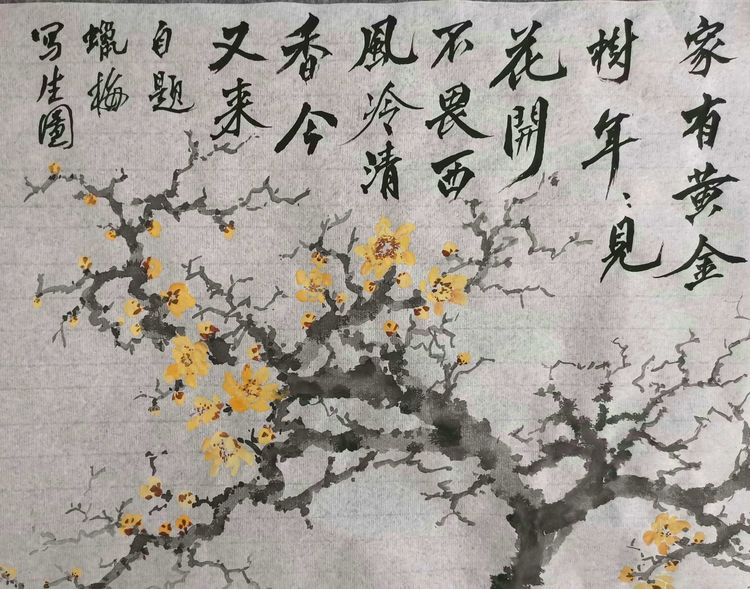 家有黄金
樹年〻見
花開
不畏西
風冷清
香今
又来
自题
蠟梅
写生圖